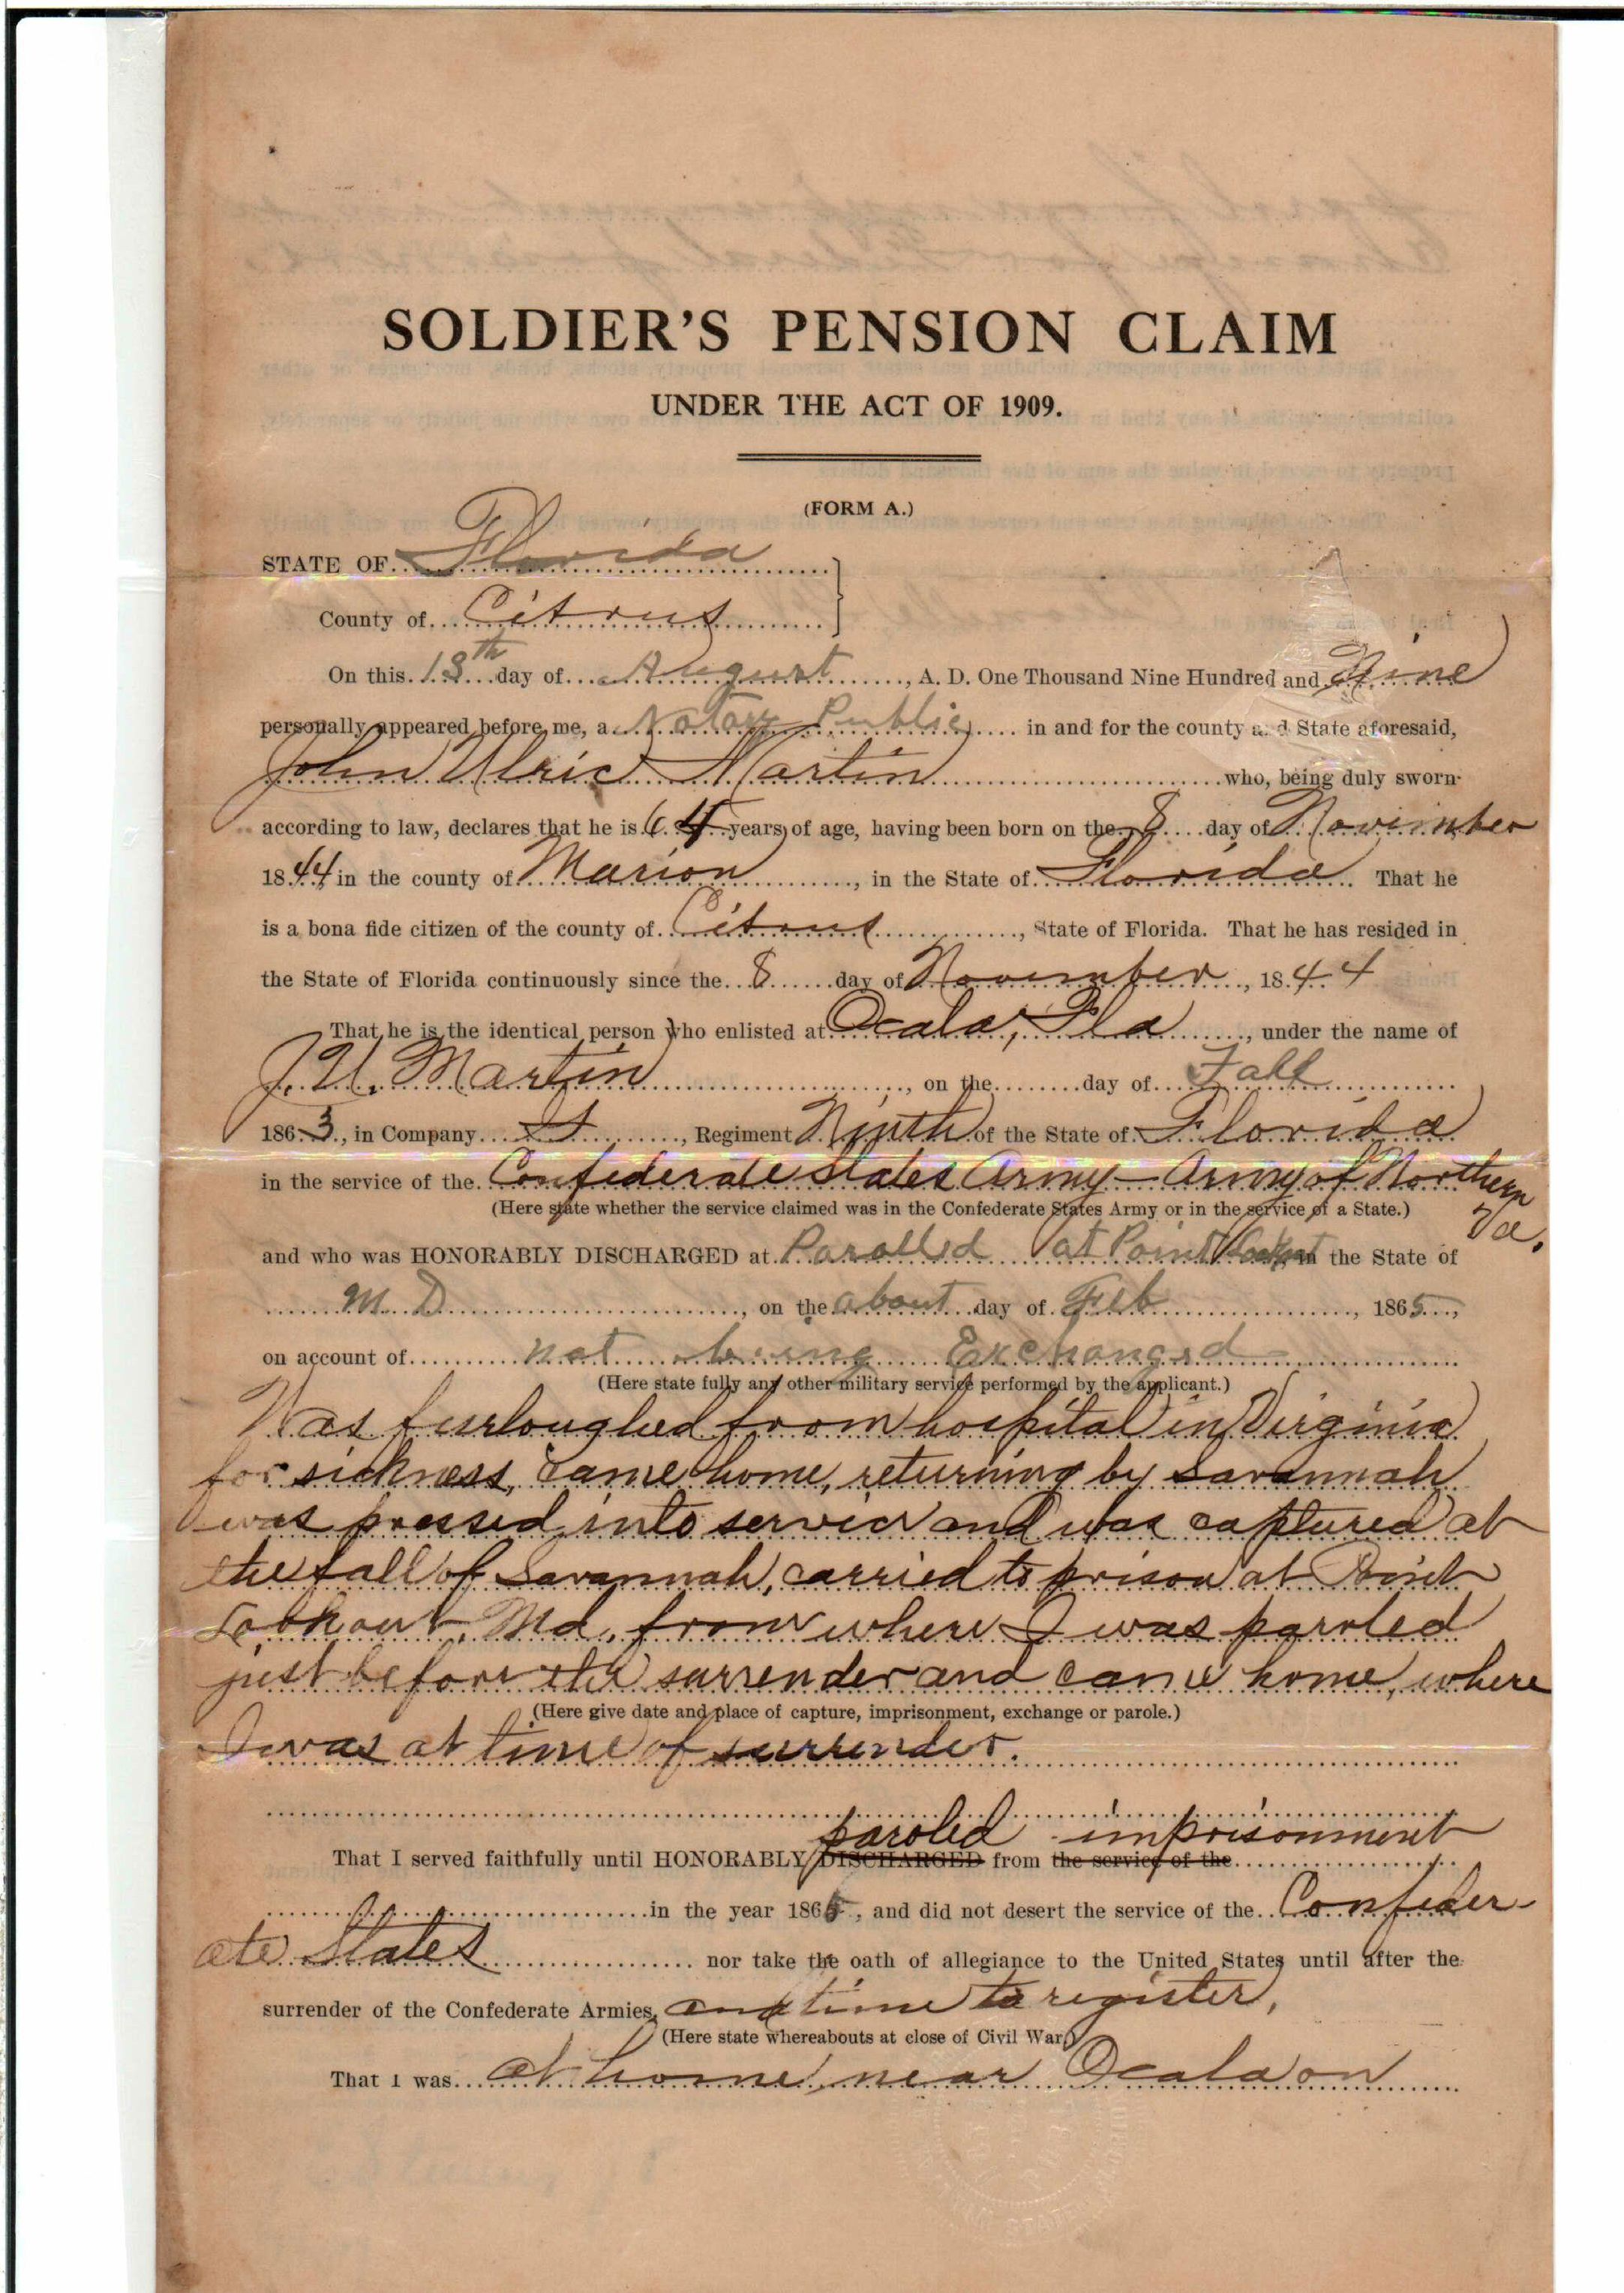 SOLDIER'S PENSION CLAIM
UNDER THE ACT OF 1909.
(FORM A.)
STATE OF Florida
County of Citrus
On this 13th day of August, A. D. One Thousand Nine Hundred and Nine
personally appeared before me, a Notary Public in and for the county and State aforesaid,
John Ulric Martin who, being duly sworn
according to law, declares that he is 64 years of age, having been born on the 8 day of November
1844 in the county of Marion, in the State of Florida. That he
is a bona fide citizen of the county of Citrus, State of Florida. That he has resided in
the State of Florida continuously since the 8 day of November, 1844
That he is the identical person who enlisted at Ocala, Fla, under the name of
J. U. Martin, on the day of Fall
1863, in Company, Regiment Ninth of the State of Florida
in the service of the Confederate States Army - Army of Northern Va.
(Here state whether the service claimed was in the Confederate States Army or in the service of a State.)
and who was HONORABLY DISCHARGED at Parolled at Point Lookout in the State of
M D, on the about day of Feb, 1865,
on account of not being Exchanged
(Here state fully any other military service performed by the applicant.)
Was furloughed from hospital in Virginia
for sickness, came home, returning by Savannah
was pressed into service and was captured at
the fall of Savannah, carried to prison at Point
Lookout, Md., from where I was paroled
just before the surrender and came home, where
(Here give date and place of capture, imprisonment, exchange or parole.)
I was at time of surrender.
paroled imprisonment
That I served faithfully until HONORABLY DISCHARGED from the service of the
in the year 1865, and did not desert the service of the Confeder-
ate States nor take the oath of allegiance to the United States until after the
surrender of the Confederate Armies, and time to register,
(Here state whereabouts at close of Civil War.)
That I was at home near Ocala on